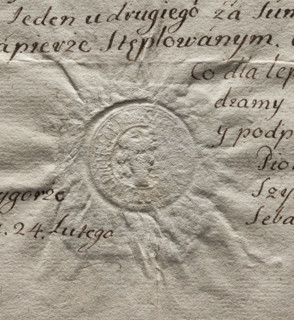 Jeden u drugiego za Sum
apierze Stęplowanym.
Co dla lep
dzamy
y podp
Pio
Szy
ygorze
Seba
. 24. Lutego